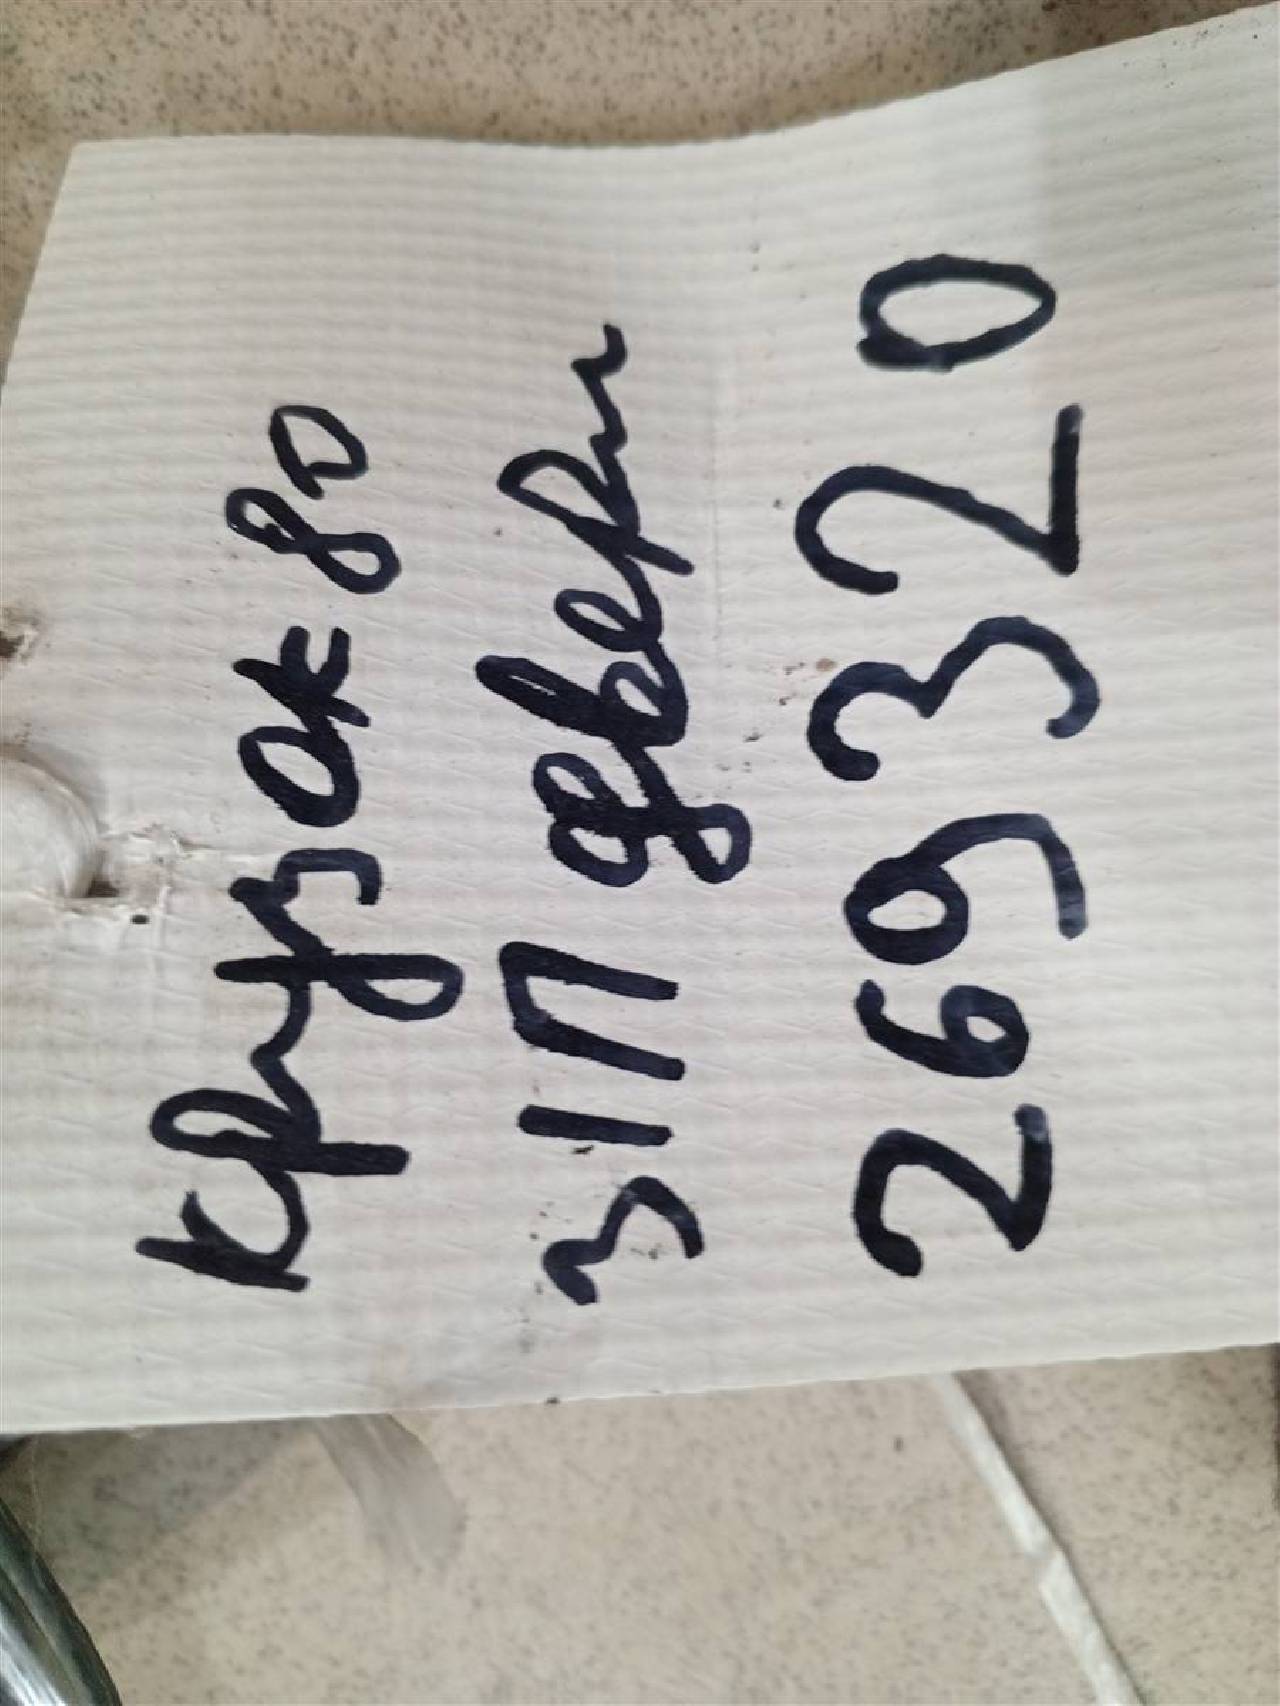 крузак 80
З П двери
269320